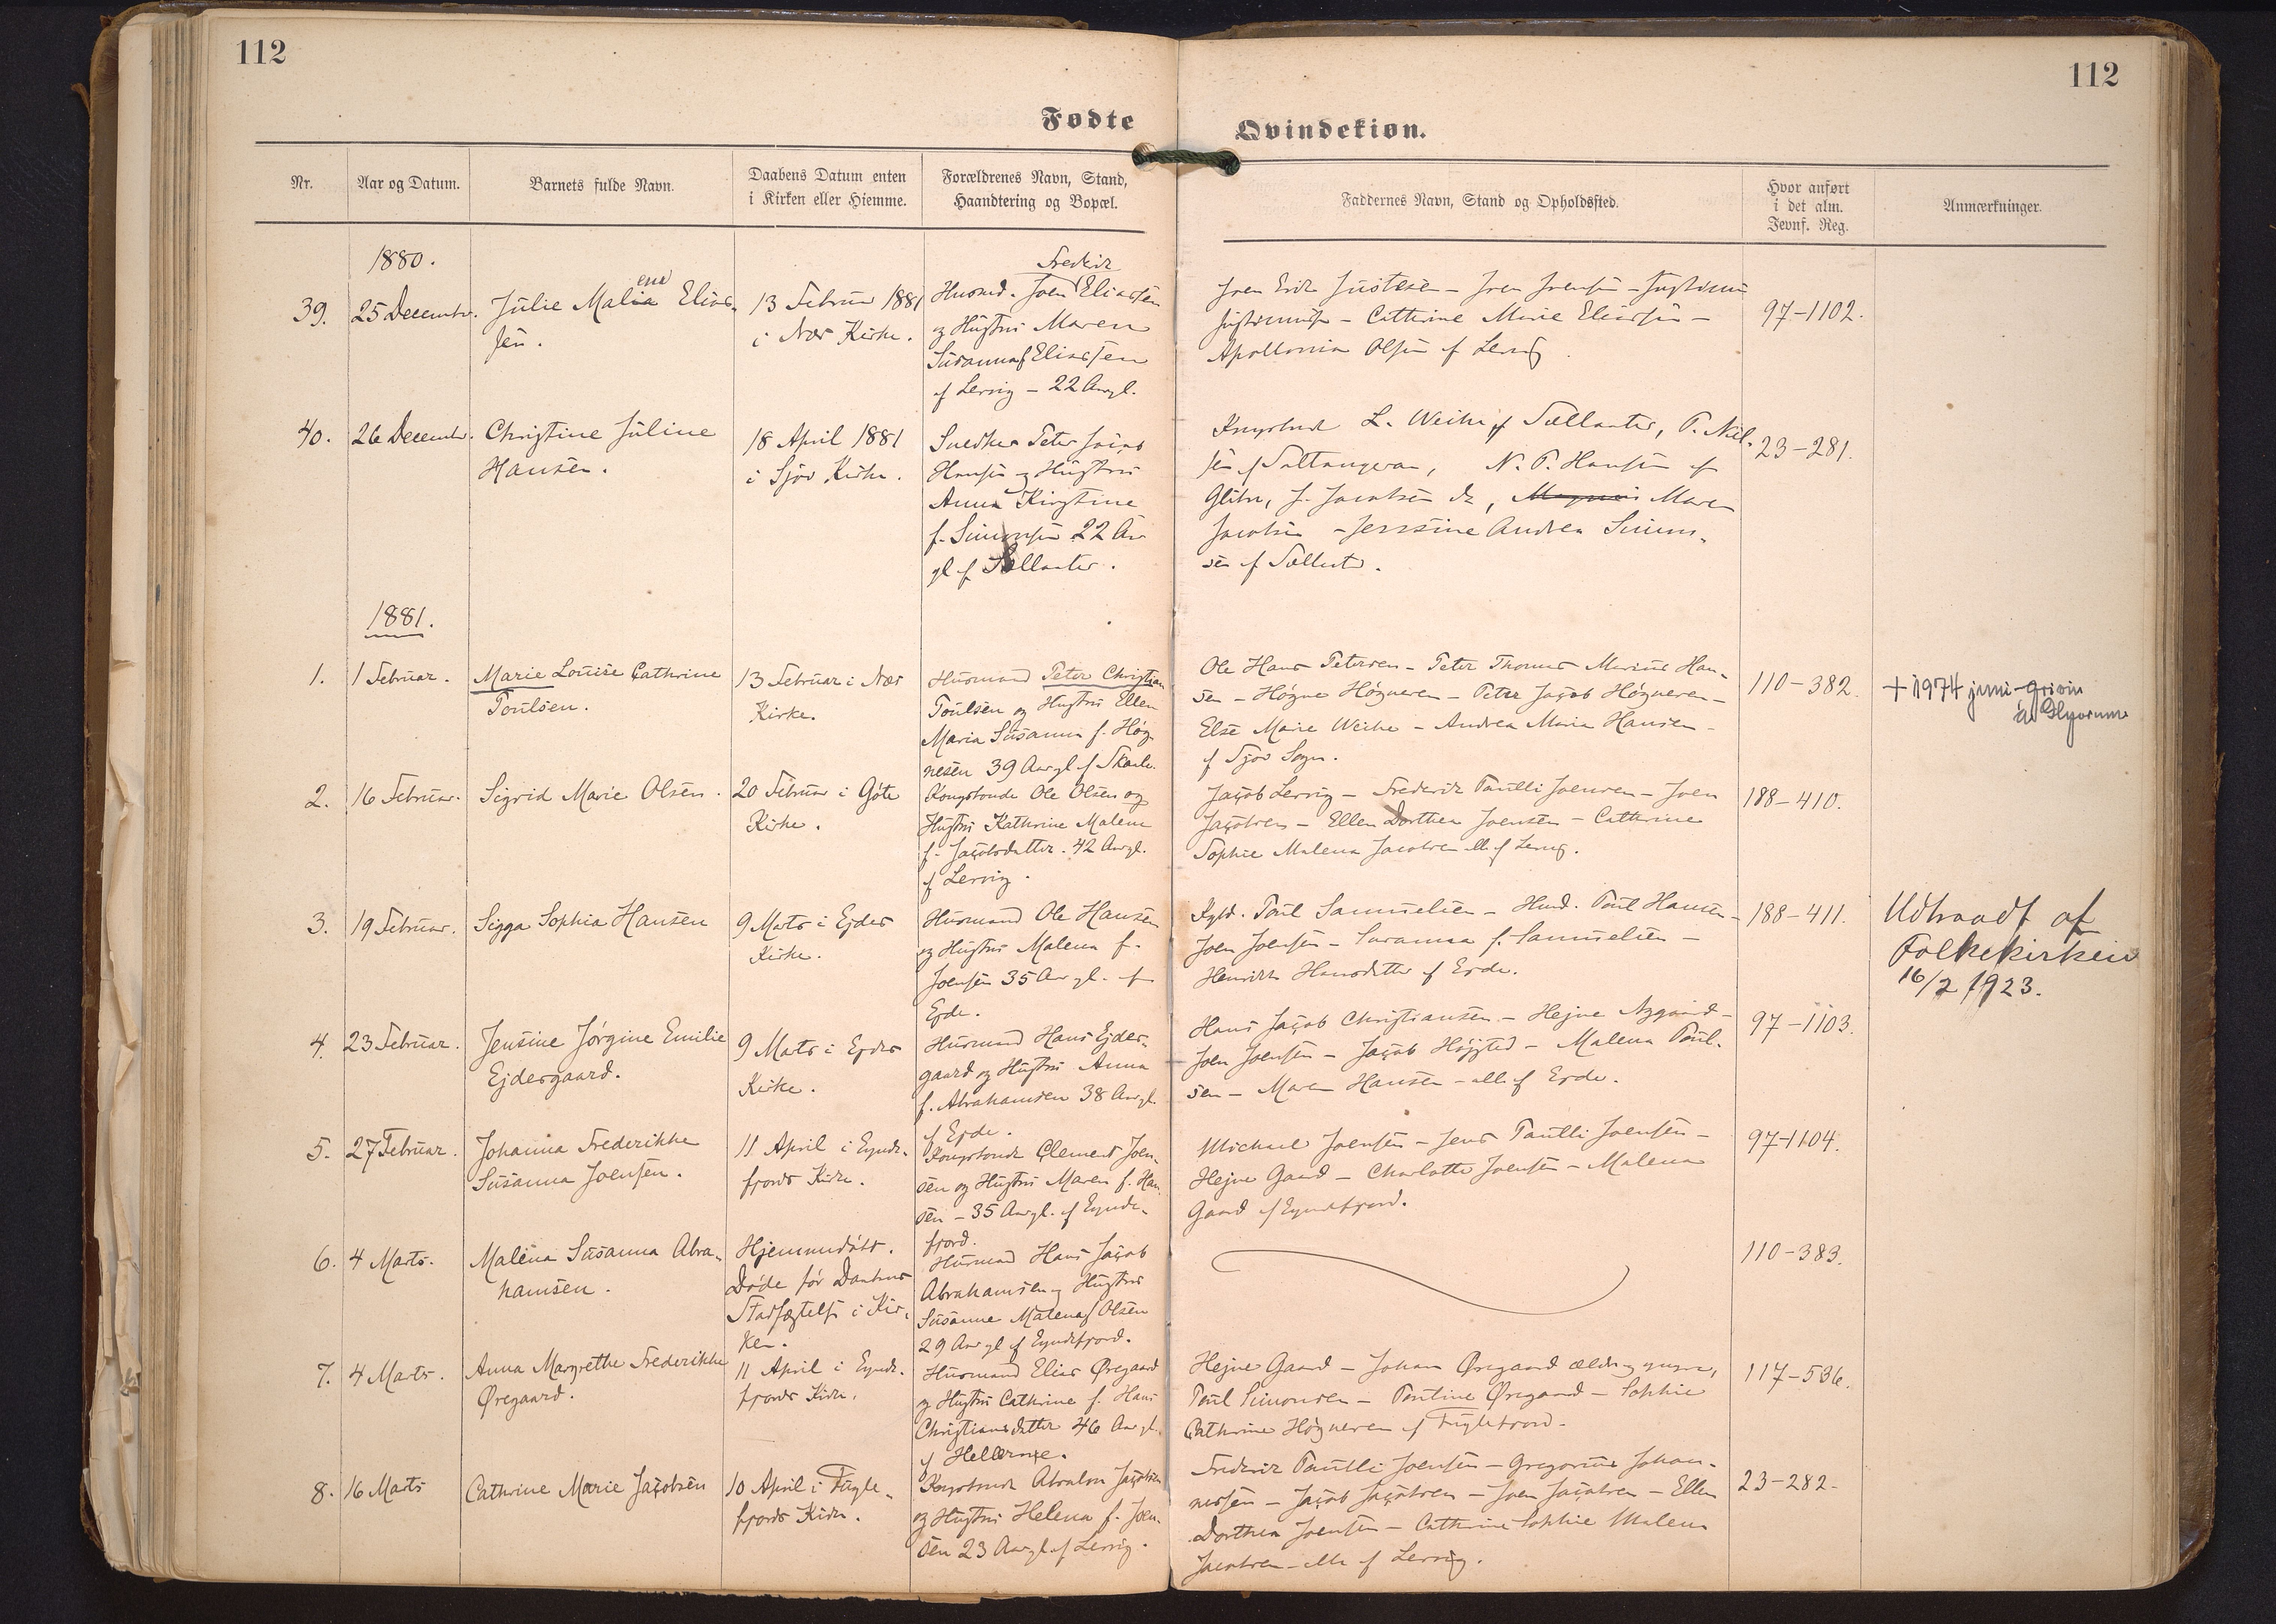 112
112
Fødte
Qvindekiøn.
Nr.
Aar og Datum.
Barnets fulde Navn.
Daabens Datum enten
i Kirken eller Hiemme.
Forældrenes Navn, Stand,
Haandtering og Bopæl.
Faddernes Navn, Stand og Opholdssted.
Hvor anført
i det alm.
Jevnf. Reg.
Anmærkninger.
1880.
39.
25 Decembr.
Julie Malia Elias-
ene
sen.
13 Februar 1881
i Nes Kirke.
Frederik
Husmd. Joen Eliassen
og Hustru Maren
Susanna f Eliassen
af Lervig - 22 Aar gl.
Catherine Marie Eliassen -
Apollonia Olsen af Lervig
97-1102.
40.
26 Decembr.
Christine Juline
Hansen.
18 April 1881
i Sjov Kirke.
Snedker Peter Jacob
Hansen og Hustru
Anna Kirstine
f. Simonsen 22 Aar
gl af Sellæter.
L. Weihe af Sellæter, P. Niel-
sen af Saltangeraa, N. P. Hansen af
Glibre, J. Jacobsen do, Magnus Maren
Jacobsen - Jensine Andrea Simon-
sen af Selletr.
23-281.
1881.
1.
1 Februar.
Marie Louise Cathrine
Poulsen.
13 Februar i Nes
Kirke.
Husmand Peter Christian
Poulsen og Hustru Ellen
Maria Susanna f. Høg-
nesen 39 Aar gl af Skaale.
Ole Hans Petersen - Peter Thomas Marius Han-
sen - Høgne Høgnesen - Peter Jacob Høgnesen -
Else Marie Weihe - Andrea Maria Hansen -
af Sjov Sogn.
110-382.
+ 1974 juni - grivin
á Glyvrum
2.
16 Februar.
Sigrid Marie Olsen.
20 Februar i Gøte
Kirke.
Kongsbonde Ole Olsen og
Hustru Kathrine Malene
f. Jacobsdatter. 42 Aar gl.
af Lervig.
Jacob Lervig - Frederik Poulli Joensen - Joen
Jacobsen - Ellen Dorthea Joensen - Cathrine
Sophie Malena Jacobsen alle af Lervig.
188-410.
3.
19 Februar.
Sigga Sophia Hansen
9 Marts i Ejdes
Kirke.
Husmand Ole Hansen
og Hustru Malena f.
Joensen 35 Aar gl. af
Ejde.
Kgbd. Poul Samuelsen - Husd. Poul Hansen -
Joen Joensen - Susanna f. Samuelsen -
Henrikke Hansdatter af Ejde.
188-411.
Udtraadt af
Folkekirken
16/2 1923.
4.
23 Februar.
Jensine Jørgine Emilie
Ejdesgaard.
9 Marts i Ejdes
Kirke.
Husmand Hans Ejdes-
gaard og Hustru Anna
f. Abrahamsen 38 Aar gl.
af Ejde.
Hans Jacob Christiansen - Hejne Nygaard -
Joen Joensen - Jacob Højsted - Malena Poul-
sen - Maren Hansen - alle af Ejde.
97-1103.
5.
27 Februar.
Johanna Frederikke
Susanna Joensen.
11 April i Funde-
fjords Kirke.
Kongsbonde Clement Joen-
sen og Hustru Maren f. Han-
sen - 35 Aar gl. af Funde-
fjord.
Michael Joensen - Jens Poulli Joensen -
Hejne Gaard - Charlotte Joensen - Malena
Gaard af Fundefjord.
97-1104.
6.
4 Marts.
Malena Susanna Abra-
hamsen.
Hjemmedøbt.
Døde før Daabens
Stadfæstelse i Kir-
ken.
Husmand Hans Jacob
Abrahamsen og Hustru
Susanne Malena f Olsen
29 Aar gl af Fundefjord.
110-383.
7.
4 Marts.
Anna Margrethe Frederikke
Øregaard.
11 April i Funde-
fjords Kirke.
Husmand Elias Øregaard
og Hustru Cathrine f. Hans
Christiansdatter 46 Aar gl.
af Hellerne.
Hejne Gaard - Johan Øregaard ældre og yngre,
Poul Simonsen - Pouline Øregaard - Sophie
Cathrine Høgnesen af Fuglefjord -
117-536.
8.
16 Marts
Cathrine Marie Jacobsen
10 April i Fugle-
fjords Kirke.
Kongsbonde Absalon Jacobsen
og Hustru Helena f. Joen-
sen 23 Aar gl. af Lervig.
Frederik Poulli Joensen - Gregorius Johan-
nessen - Jacob Jacobsen - Joen Jacobsen - Ellen
Dorthea Joensen - Cathrine Sophie Malena
Jacobsen - alle af Lervig.
23-282.